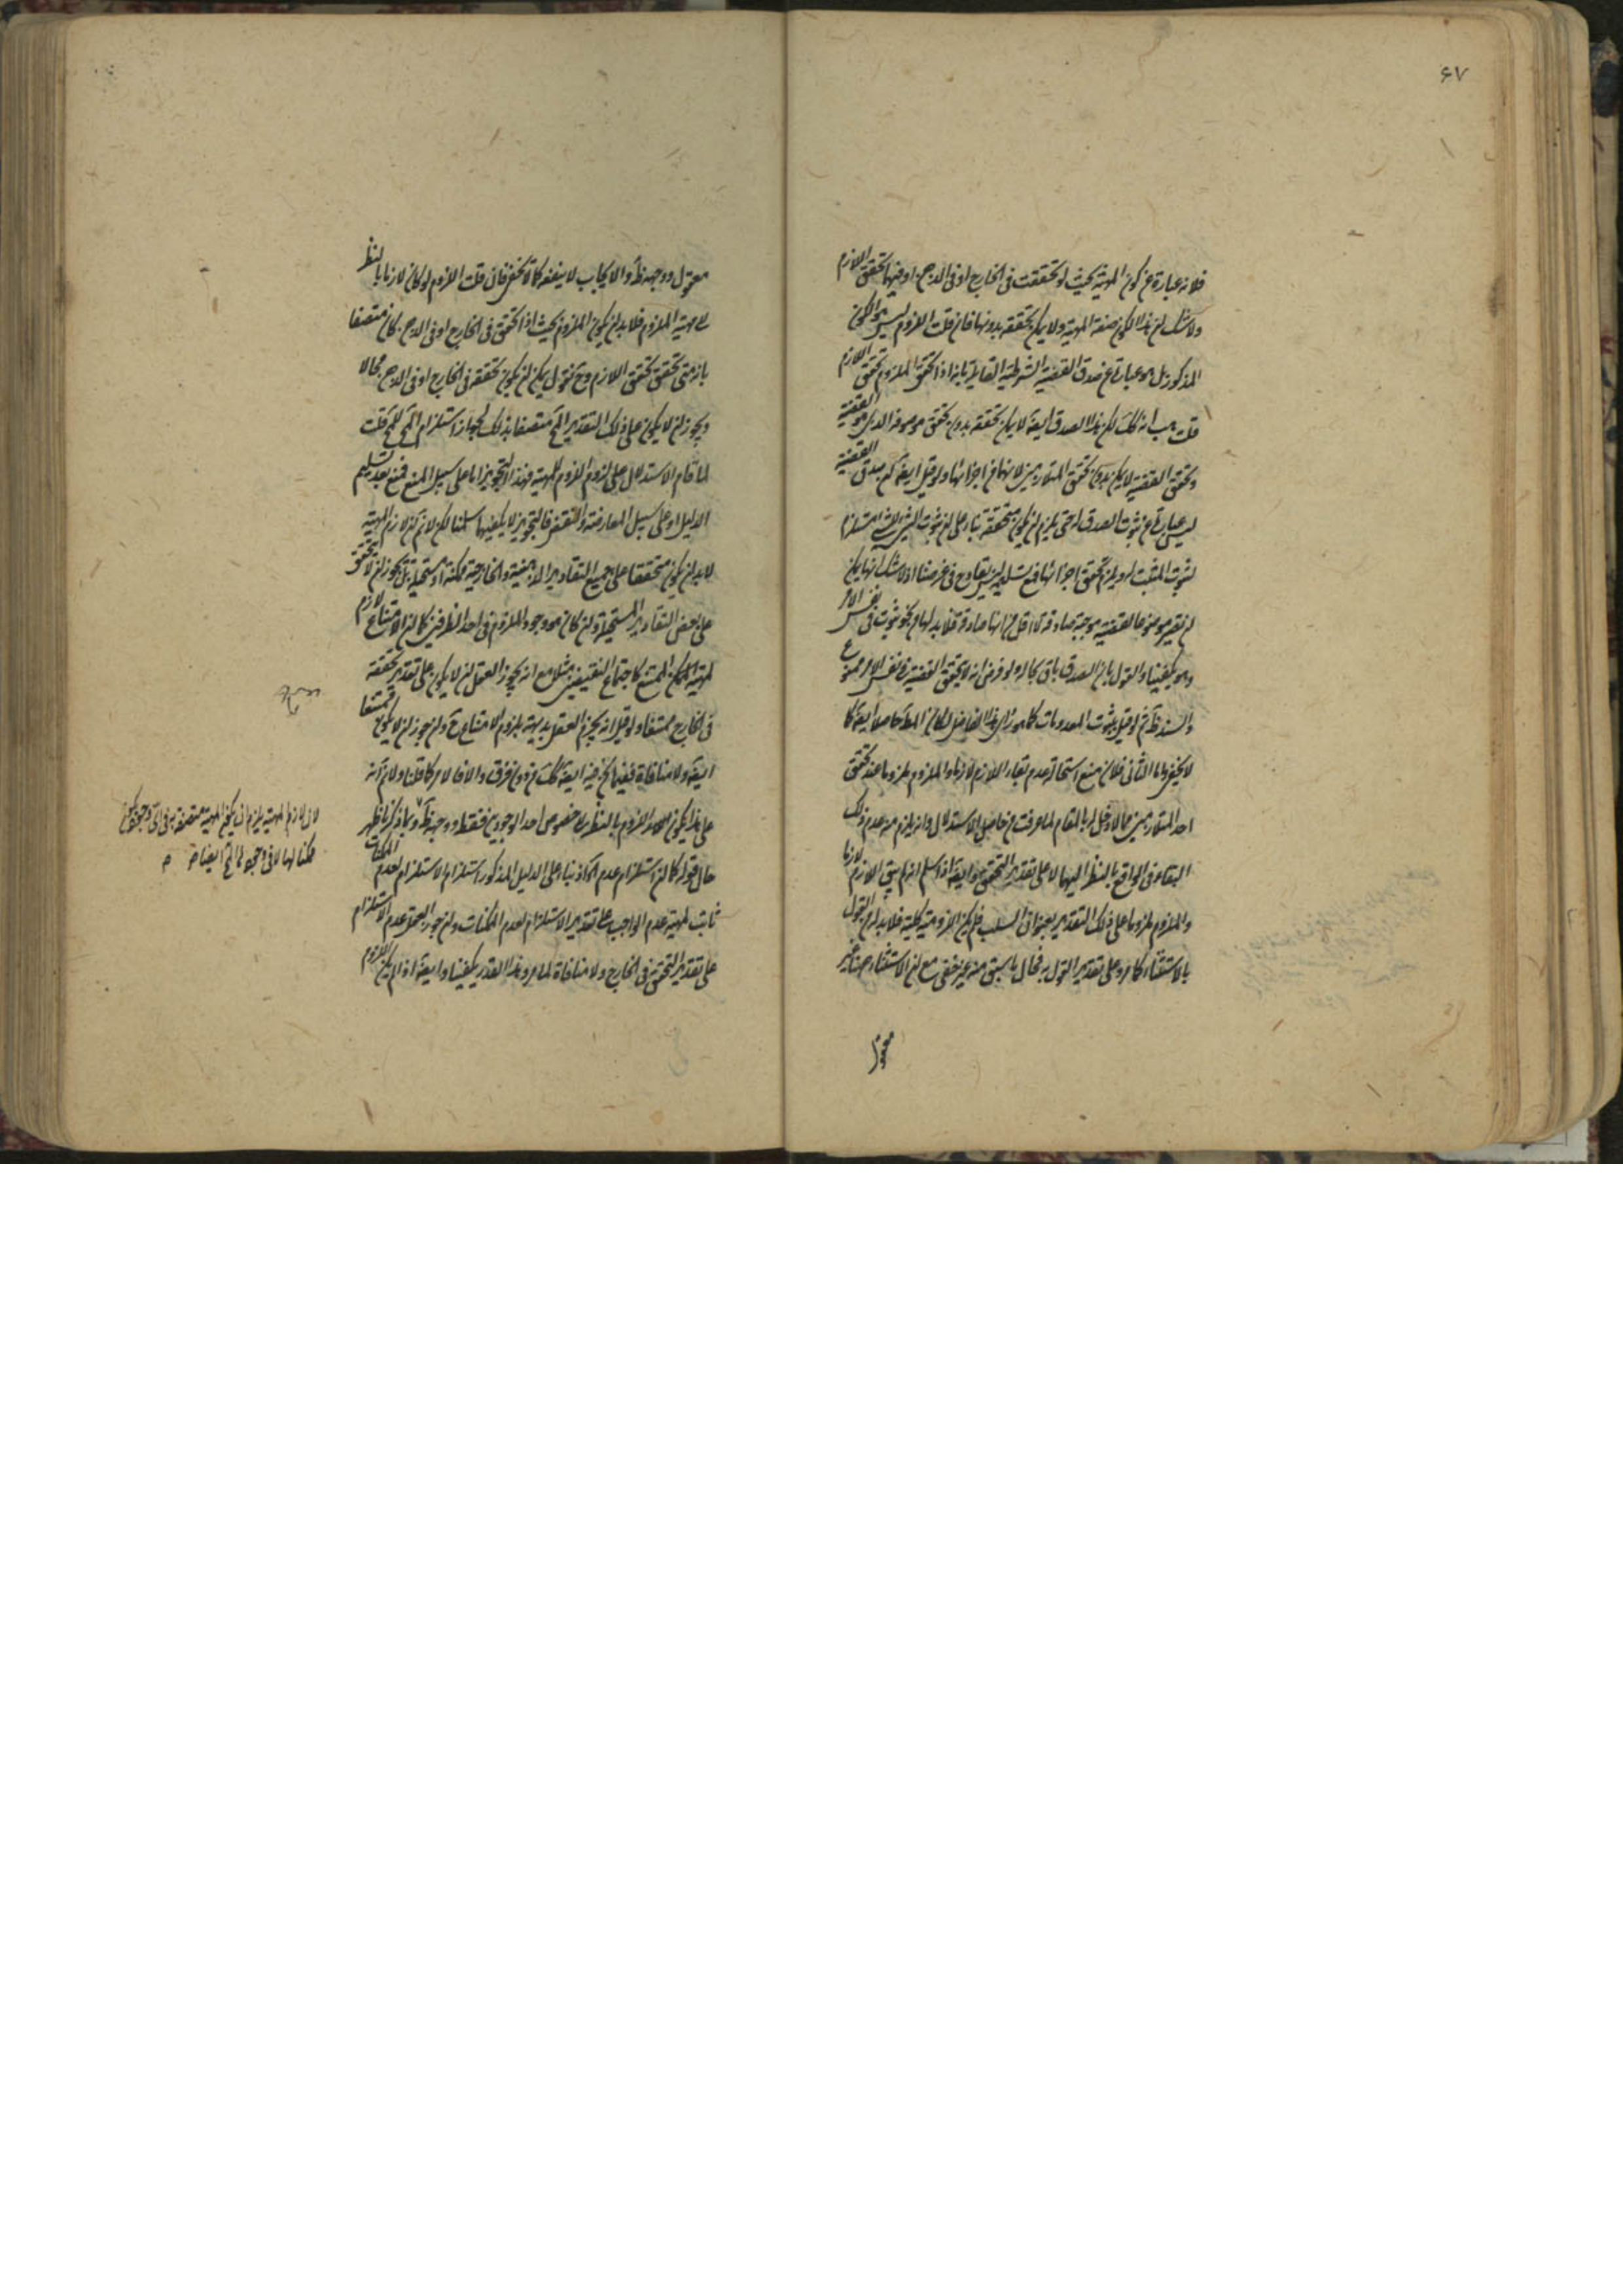 ۶۷
فلانه عبارة عن كون المهية بحيث لو تحققت فى الخارج او فى الذهن او فيهما تحقق اللازم
ولا شك ان هذا الكون صفة المهية ولا يمكن تحققه بدونها فان قلت اللزوم ليس هو الكون
المذكور بل هو عبارة عن صدق القضية الشرطية القايلة بانه اذا تحقق الملزوم تحقق اللازم
قلت هب انه كك لكن هذا الصدق ايضا لا يمكن تحققه بدون تحقق موصوفه الذى هو القضية
وتحقق القضية لا يمكن بدون تحقق المتلازمين لانهما من اجزائها ولو قيل ايضا صدق القضية
ليس عبارة عن ثبوت الصدق له حتى يلزم ان يكون متحققة بناء على ان ثبوت الشئ للشئ يستلزم
لثبوت المثبت له ويلزم تحقق اجزائها فمع تسليمه ليس بقادح فى غرضنا اذ لا شك انها يمكن
ان يصير موضوعا لقضية موجبة صادقة لا اقل من انها صادقة فلا بد لها من نحو ثبوت فى نفس الامر
وهو يكفينا والقول بان الصدق باق بحاله ولو فرض انه لا يتحقق القضية فى نفس الامر ممنوع
والسند ظ نعم لو قيل بثبوت المعدومات كما هو رأى هذا الفاضل لكان المنع حاصلا ايضا كما
لا يخفى واما الثانى فلان منع استحالة عدم بقاء اللازم لازما والملزوم ملزوما عند تحقق
احد المتلازمين مما لا دخل له بالمقام لما عرفت من حاصل الاستدلال وانه يلزم منه عدم ذلك
البقاء فى الواقع بالنظر اليهما لا على تقدير التحقق وايضا اذا سلم انه لم يبق اللازم لازما
والملزوم ملزوما على ذلك التقدير بعنوان السلب فلم يكن اللزومية كلية فلا بد من القول
بالاستثناء كما مر وعلى تقدير القول به فحال ما سبق منه غير خفى مع ان الاستثناء هيهنا غير
معقول
معقول ووجهه ظ والايجاب لا ينفعه كما لا يخفى فان قلت اللزوم لو كان لازما بالنظر
الى مهية الملزوم فلا بد ان يكون الملزوم بحيث اذا تحقق فى الخارج او فى الذهن كان متصفا
بانه متى تحقق تحقق اللازم وح نقول يمكن ان يكون تحققه فى الخارج او فى الذهن محالا
ويجوز ان لا يكون على ذلك التقدير المح متصفا بذلك لجواز استلزام المح للمح قلت
لما قام الاستدلال على لزوم اللزوم للمهية فهذا التجويز اما على سبيل المنع فمنع بعد تسليم
الدليل او على سبيل المعارضة والنقض فالتجويز لا يكفيهما سلمنا لكن لا نم ان لازم المهية
لا بد ان يكون متحققا على جميع التقادير الذهنية والخارجية ممكنة او مستحيلة بل يجوز ان لا يتحقق
على بعض التقادير المستحيلة وان كان هو وجود الملزوم فى احد الظرفين كما ان الامتناع لازم
لمهية الممتنع كاجتماع النقيضين مثلا مع انه يجوز العقل ان لا يكون على تقدير تحققه
فى الخارج ممتنعا ولو قيل انه يجزم العقل بديهة بلزوم الامتناع ح وان جوز ان لا يكون ممتنعا
ايضا ولا منافاة ففيما نحن فيه ايضا كك من دون فرق والافالامر كما قلنا ولا نم انه
على هذا يكون اللزوم بالنظر الى خصوص احد الوجودين فقط ووجهه ظ وبما ذكرنا ظهر
حال قوله كما ان استلزام عدم الواجب بناء على الدليل المذكور استلزام الاستلزام لعدم الممكنات
ثابت لمهية عدم الواجب على تقدير الاستلزام لعدم الممكنات وان جوز العقل عدم الاستلزام
على تقدير التحقق فى الخارج ولا منافاة لما مر وهذا القدر يكفينا وايضا اذا لم يكن اللزوم
لان لازم المهية يلزم ان يكون المهية متصفة به فى اى وجود يكون
ممكنا لها لا فى وجود لها المح ايضا منه